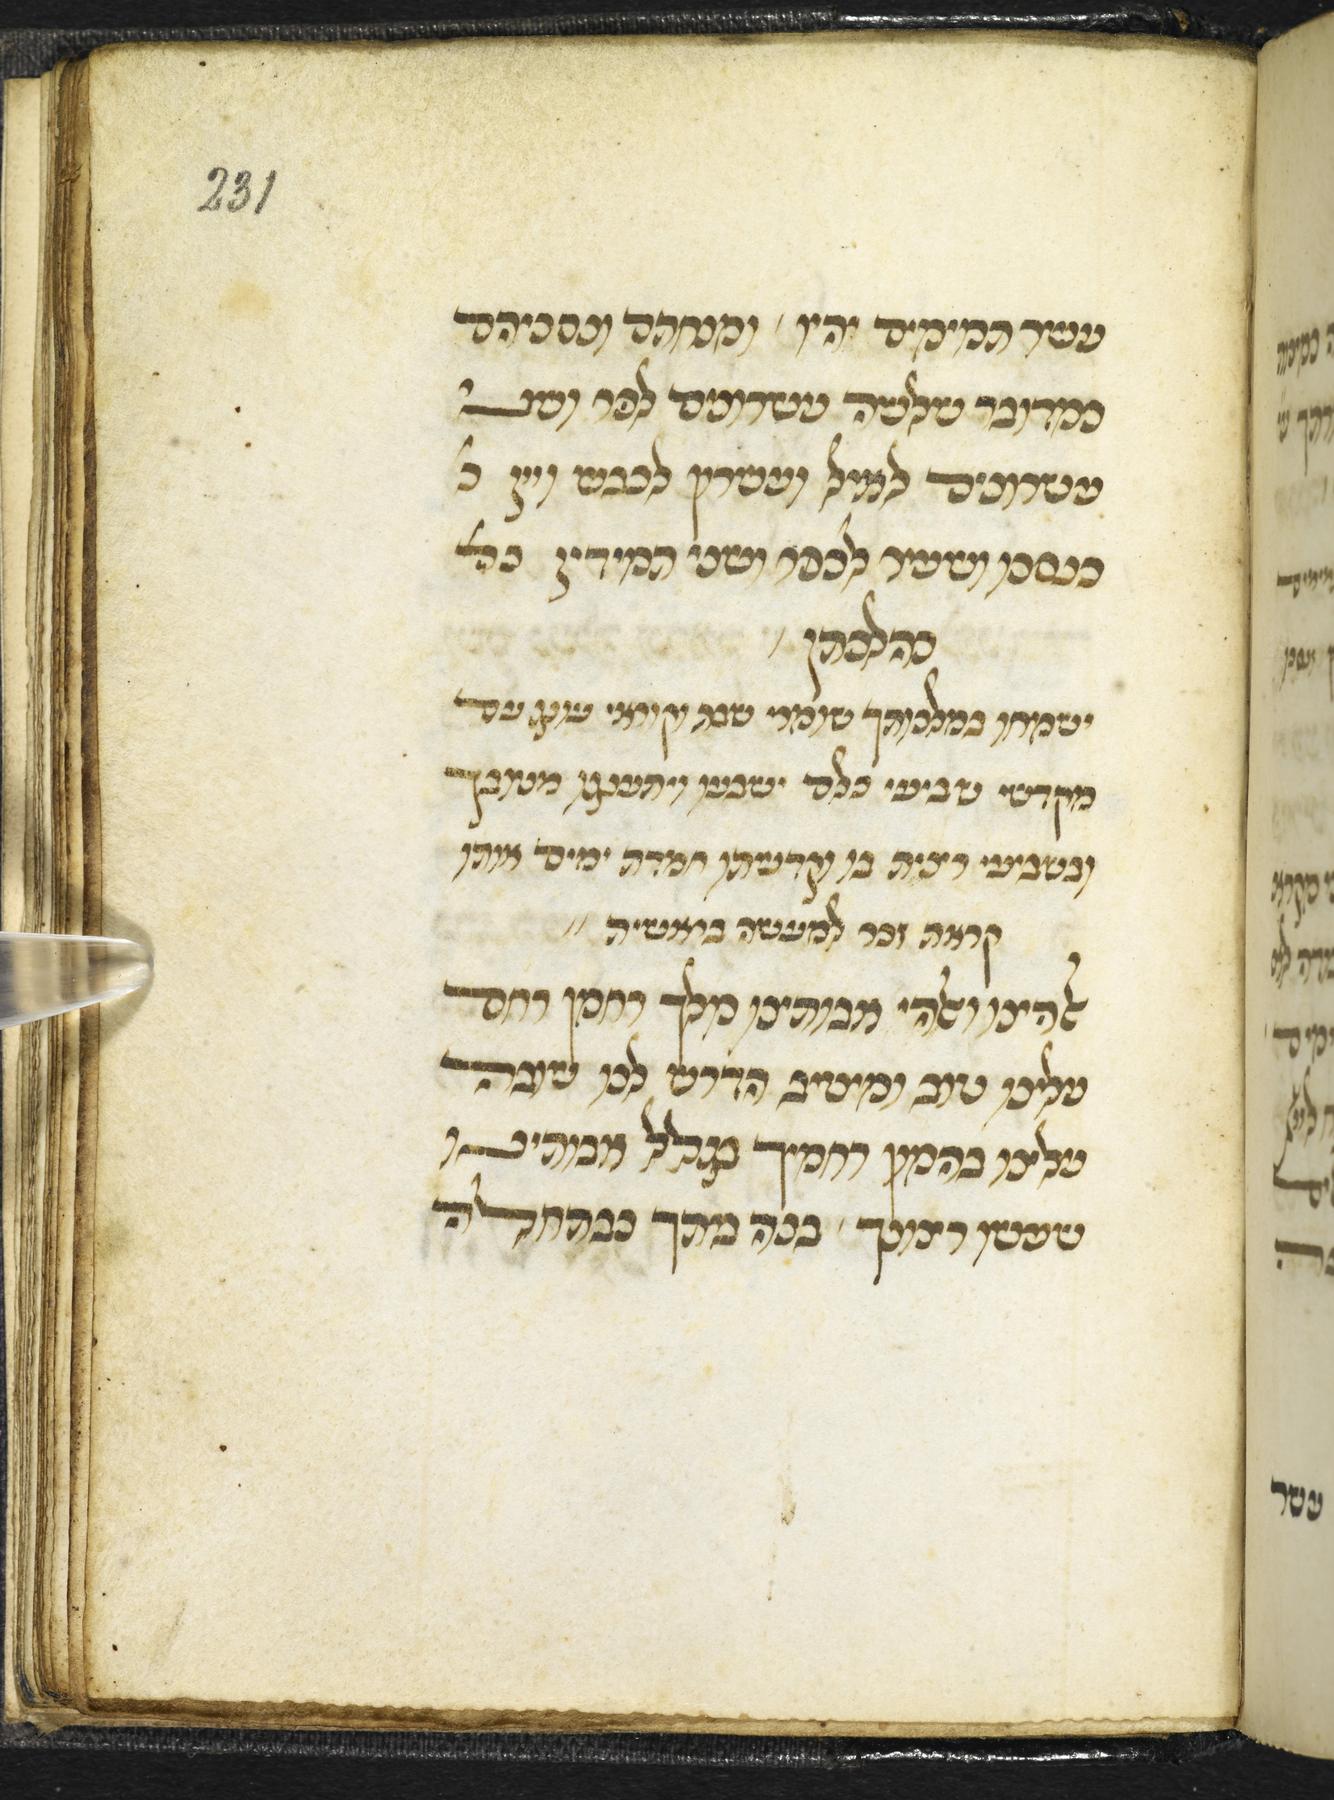 231
עשר תמימים יהיו ומנחתם ונסכיהם
כמדובר שלשה עשרונים לפר ושני
עשרונים לאיל ועשרון לכבש ויין כ
כנסכו ושעיר לכפר ושני תמידין כה
כהלכתן
ישמחו במלכותך שומרי שבת וקוראי עונג עם
מקדשי שביעי כלם ישבעו ויתענגו מטובך
ובשביעי רצית בו וקדשתו חמדת ימים אותו
קראת זכר למעשה בראשית
אלהינו ואלהי אבותינו מלך רחמן רחם
עלינו טוב ומיטיב הדרש לנו שובה
עלינו בהמון רחמיך בגלל אבותינו
שעשו רצונך בנה ביתך כבתחלה